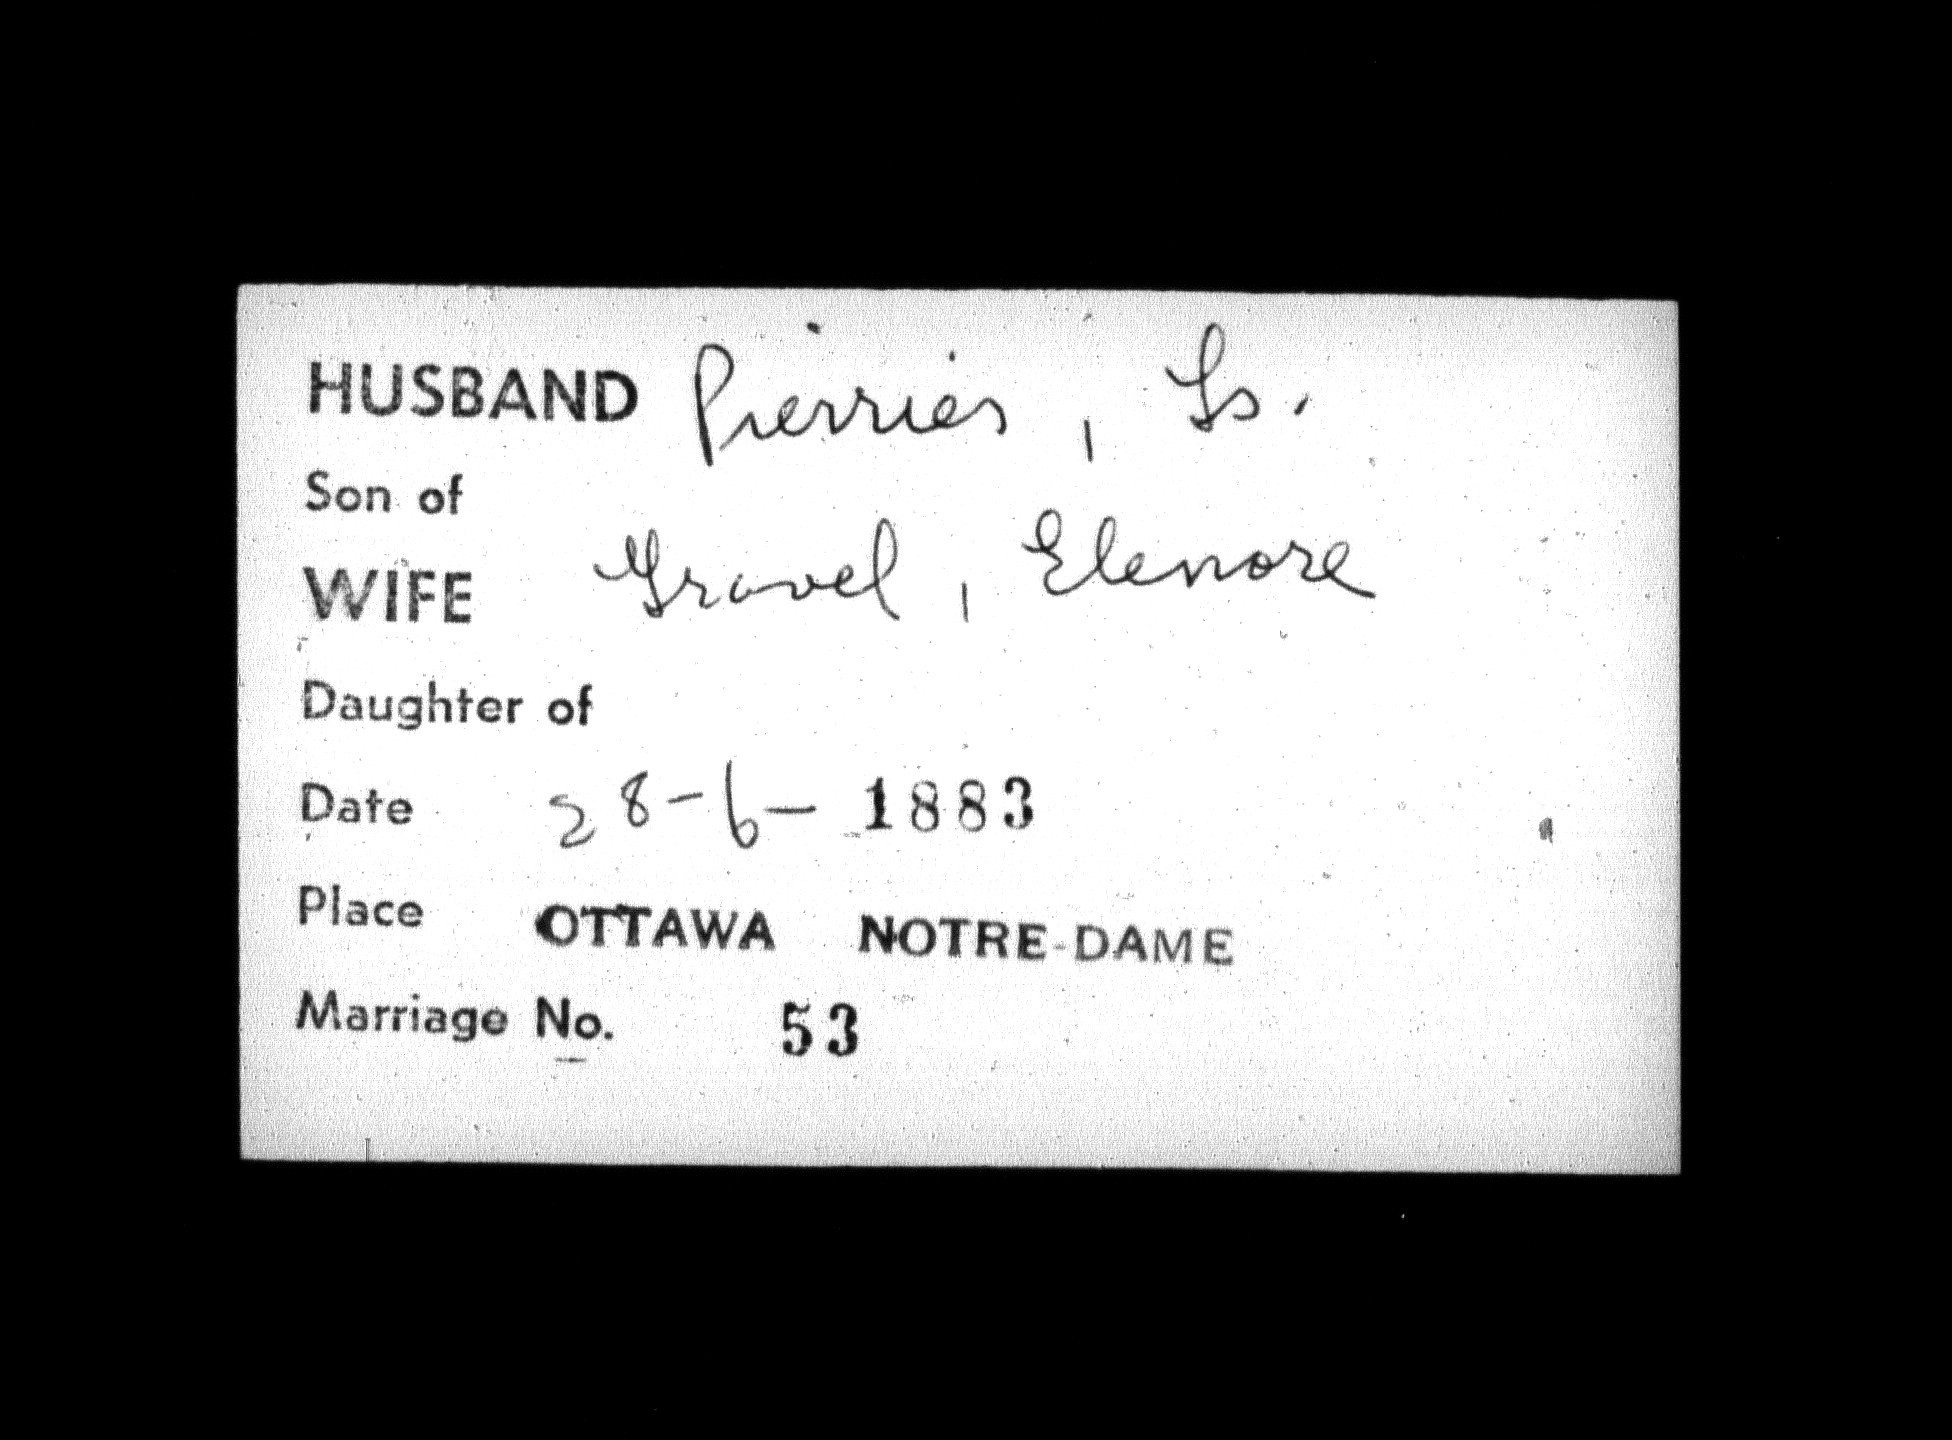 HUSBAND Pierries, Ls.
Son of
WIFE Gravel, Elenore
Daughter of
Date 28-6-1883
Place OTTAWA NOTRE-DAME
Marriage No. 53